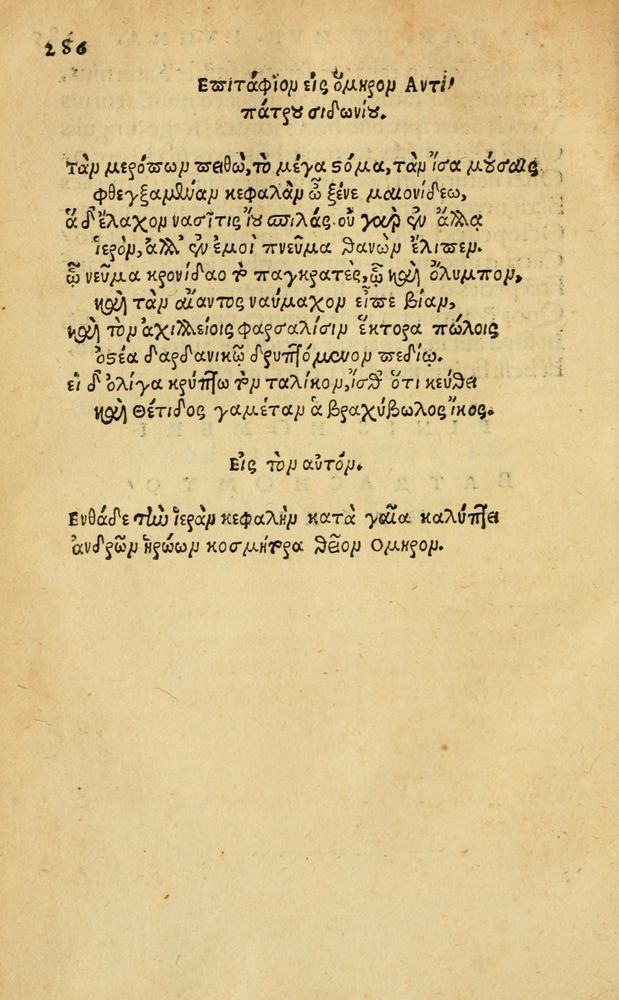 286
Επιτάφιον εἰς ὅμηρον Αντι
πάτρου σιδωνίου.
τὰν μερόπων πειθὼ, τὸ μέγα στόμα, τὰν ἴσα μούσαις
φθεγξαμέναν κεφαλὰν ὦ ξένε μαιονίδεω,
ἅ δ' ἔλαχον νασῖτις ἴου σπιλάς. οὐ γὰρ ἐν ἄλλᾳ
ἱερὸν, ἀλλ' ἐν ἐμοὶ πνεῦμα θανὼν ἔλιπεν.
ᾧ νεῦμα κρονίδαο τὸ παγκρατὲς, ᾧ καὶ ὄλυμπον,
καὶ τὰν αἴαντος ναύμαχον εἶπε βίαν,
καὶ τὸν ἀχιλλείοις φαρσαλίσιν ἕκτορα πώλοις
ὀστέα δαρδανικῷ δρυπτόμενον πεδίῳ.
εἰ δ' ὀλίγα κρύπτω τὸν ταλίκον, ἴσθ' ὅτι κεύθει
καὶ Θέτιδος γαμέταν ἁ βραχύβωλος ἴκος.
Εἰς τὸν αὐτόν.
Ενθάδε τὴν ἱερὰν κεφαλὴν κατὰ γαῖα καλύπτει
ἀνδρῶν ἡρώων κοσμήτορα θεῖον Ομηρον.